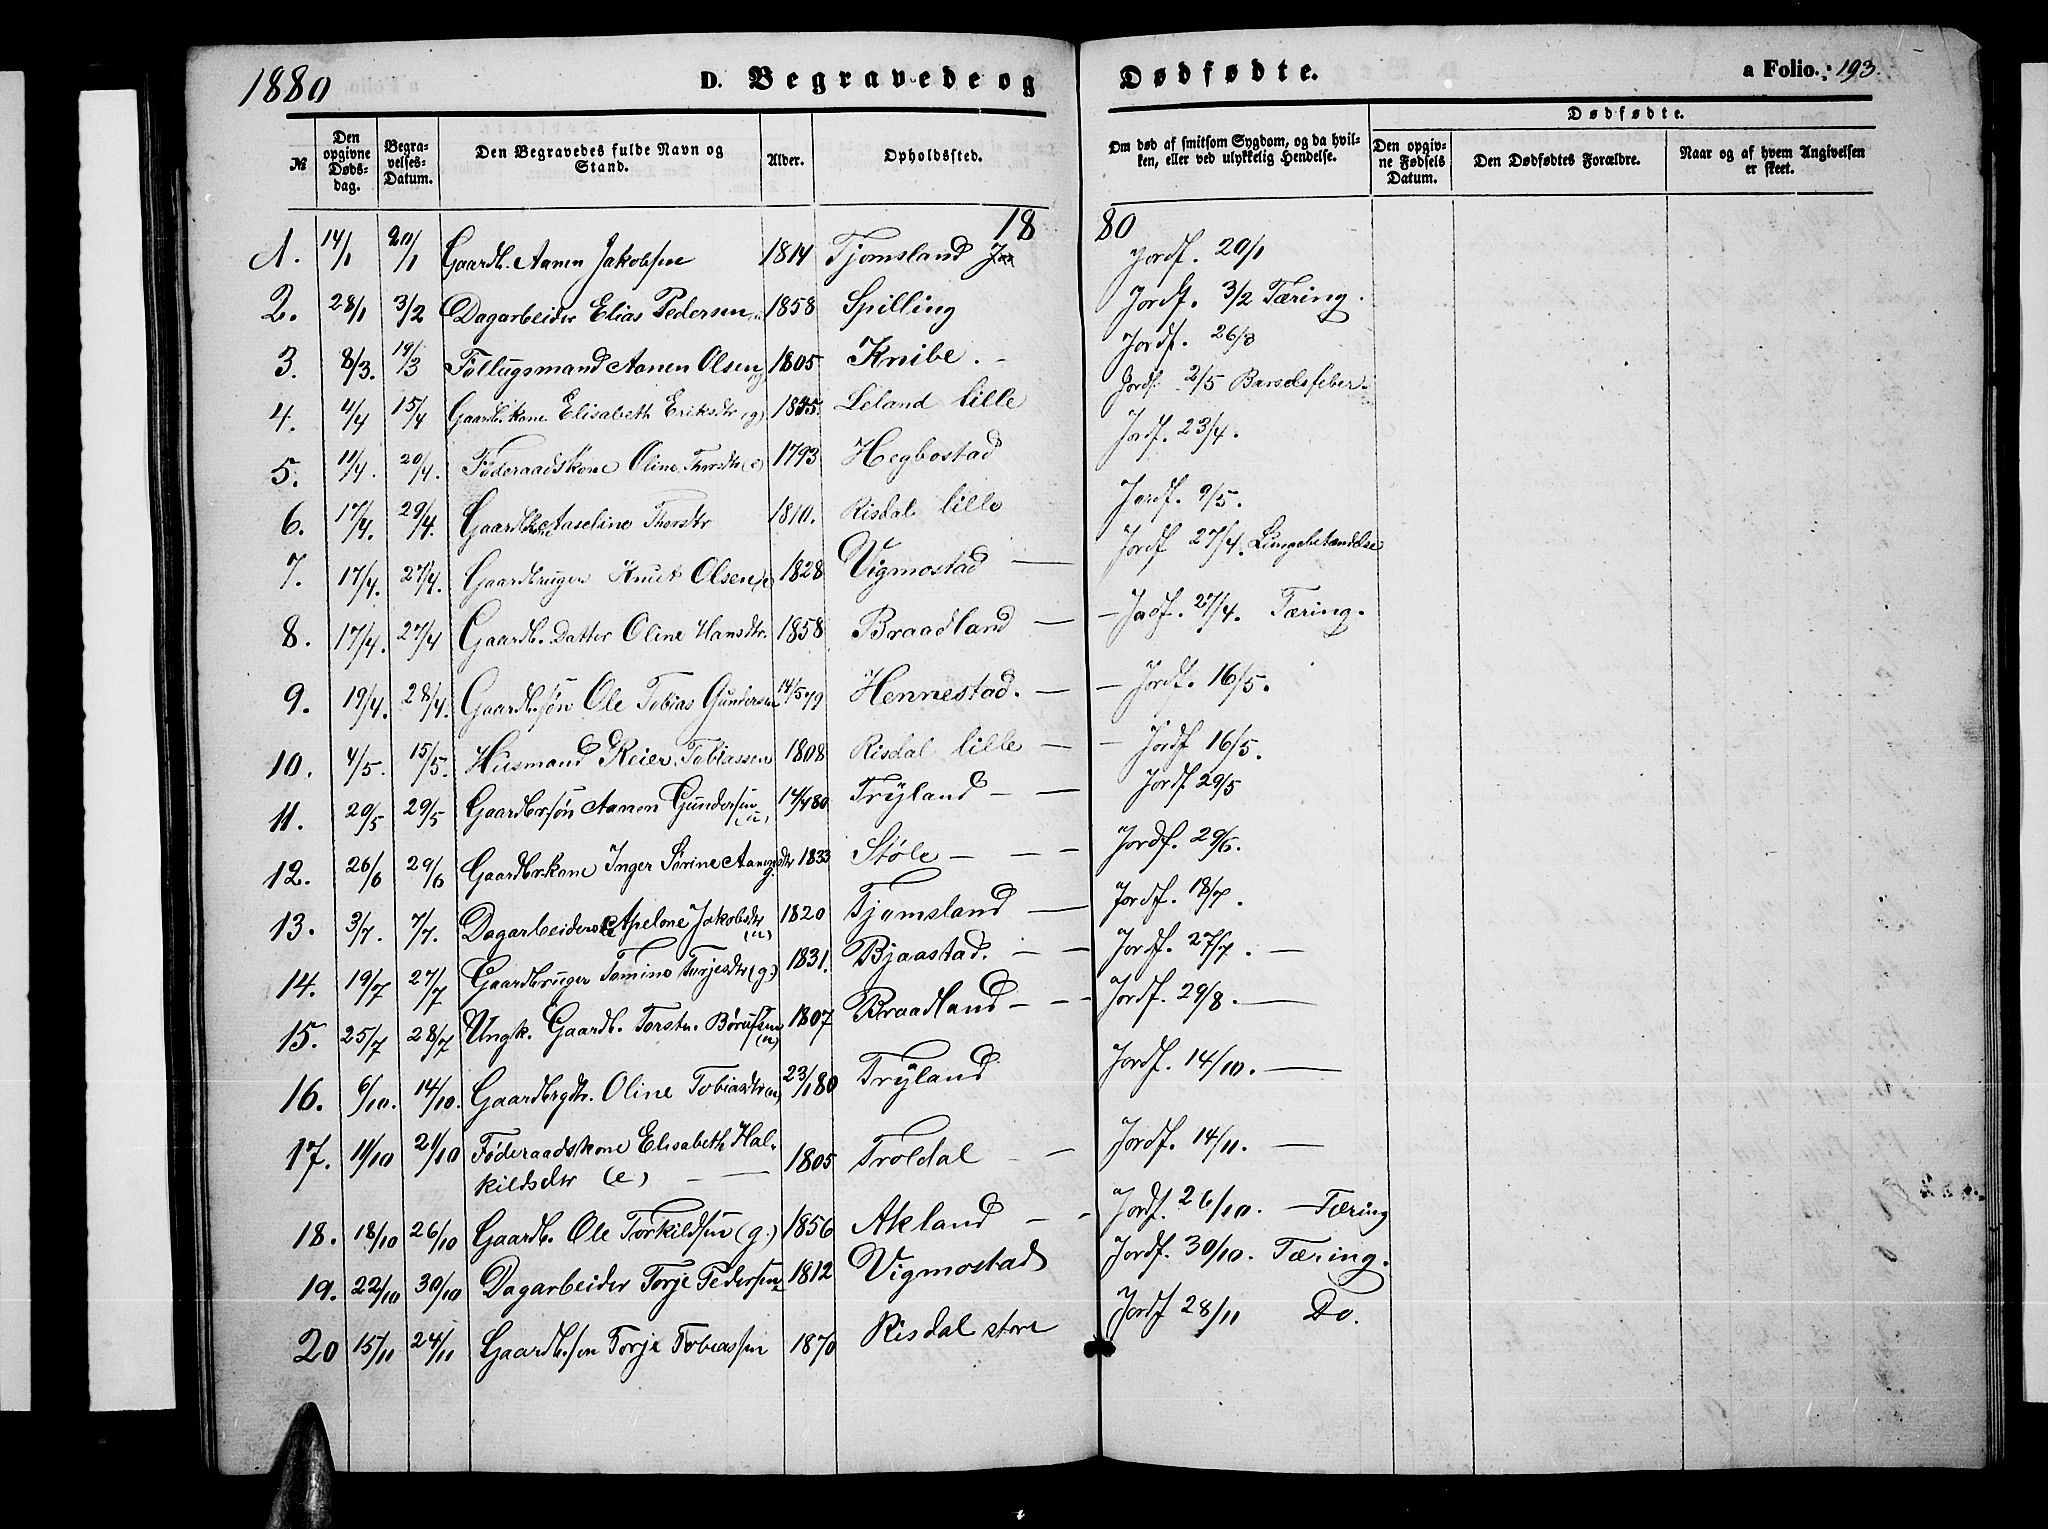 1880 D. Begravede og Dødfødte. a Folio. 193.
№ Den opgivne Døds-dag. Begra-velses-Datum. Den Begravedes fulde Navn og Stand. Alder. Opholdssted. Om død af smitsom Sygdom, og da hvil-ken, eller ved ulykkelig Hendelse. Dødfødte.
Den opgiv-ne Fødsels Datum. Den Dødfødtes Forældre. Naar og af hvem Angivelsen er skeet.
1880
1. 14/1 20/1 Gaardb. Aanen Jakobsen 1814 Tjomsland Jordf. 20/1
2. 28/1 3/2 Dagarbeider Elias Pedersen 1858 Spilling Jordf. 3/2 Tæring.
3. 8/3. 14/3 Follugsmand Aanen Olsen 1805 Knibe. - Jordf. 26/3
4. 4/4 15/4 Gaardb.kone Elisabeth Eriksdtr (g) 1835. Leland lille Jordf. 2/5 Barselsfeber.
5. 11/4. 20/4. Føderaadskone Oline Thorsdtr (e) 1793 Hegbostad Jordf. 23/4.
6. 17/4. 29/4. Gaardbkone Aaseline Thorsdtr 1810. Risdal lille Jordf. 9/5.
7. 17/4. 27/4. Gaardbruger Knut Olsen (e) 1828 Vigmostad — Jordf 27/4. Lungebetændelse
8. 17/4. 27/4 Gaardb. Datter Oline Hansdtr. 1858 Braadland — — Jordf. 27/4. Tæring.
9. 19/4. 28/4. Gaardb.søn Ole Tobias Gundersen 14/5 79 Hennestad. — — Jordf. 16/5.
10. 4/5. 15/5. Husmand Reier Tobiassen 1808 Risdal lille — — Jordf 16/5.
11. 20/5 29/5 Gaardbrsøn Aanen Gundersen (u) 14/4 80 Trÿland — — Jordf 29/5
12. 26/6 29/6 Gaardbrkone Inger Sørine Aanensdtr g. 1833 Støle — — — Jordf. 29/6.
13. 3/7. 7/7. Dagarbeiderske Apelone Jakobsdtr (u) 1820 Tjomsland — Jordf. 18/7.
14. 19/7 27/7 Gaardbruger Tomine Torjesdtr (g.) 1831. Bjaastad. — — Jordf. 27/7. —
15. 25/7 28/7 Ungk. Gaardb. Torstn. Børufsen (u) 1807 Braadland — — Jordf. 29/8. —
16. 6/10. 14/10. Gaardbrgdtr. Oline Tobiasdtr (u) 23/1 80 Trÿland Jordf. 14/10. —
17. 11/10 21/10 Føderaadskone Elisabeth Hal-
kildsdtr (e) — — 1805 Troldal — — Jordf. 14/11. —
18. 18/10 26/10 Gaardb. Ole Torkildsen (g.) 1856 Akland — - Jordf. 26/10. — Tæring
19. 22/10 30/10 Dagarbeider Torje Pedersen 1812 Vigmostad Jordf. 30/10. Tæring.
20 15/11 24/11 Gaardb.sen Torje Tobiassen 1870 Risdal store Jordf 28/11 Do.